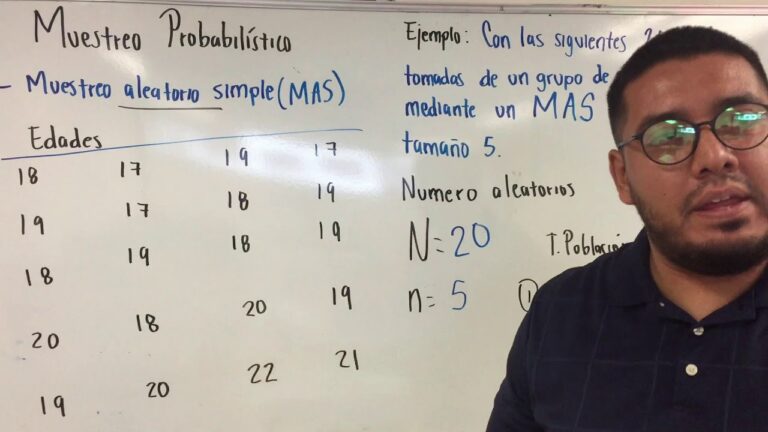 Muestreo Probabilístico
- Muestreo aleatorio simple (MAS)
Edades
18 17 19 17
19 17 18 19
18 19 18 19
20 18 20 19
19 20 22 21
Ejemplo: Con las siguientes
tomadas de un grupo de
mediante un MAS
tamaño 5.
Numero aleatorios
N=20 T. Población
n=5 1